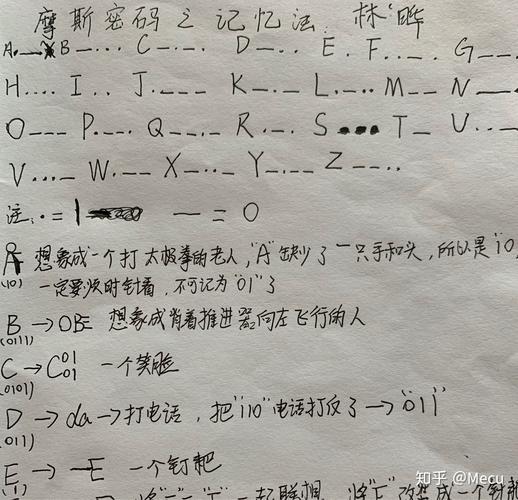 摩斯密码之记忆法. 林晔
A.— B—... C—.—. D—.. E. F..—. G——.
H.... I.. J.——— K—.— L.—.. M—— N—.
O——— P.——. Q——.— R.—. S... T— U..—
V...— W.—— X—..— Y—.—— Z——..
注: .=1 —=0
想象成一个打太极拳的老人,"A"缺少了一只手和头,所以是"10
(10) 一定要顺时针看,不可记为"01"了
B → OBE 想象成背着推进器向左飞行的人
(0111)
C → C01 01 一个笑脸
(0101)
D → da → 打电话,把"110"电话打反了→"011"
(011)
E → —E 一个钉耙
(1)
知乎 @Mecu